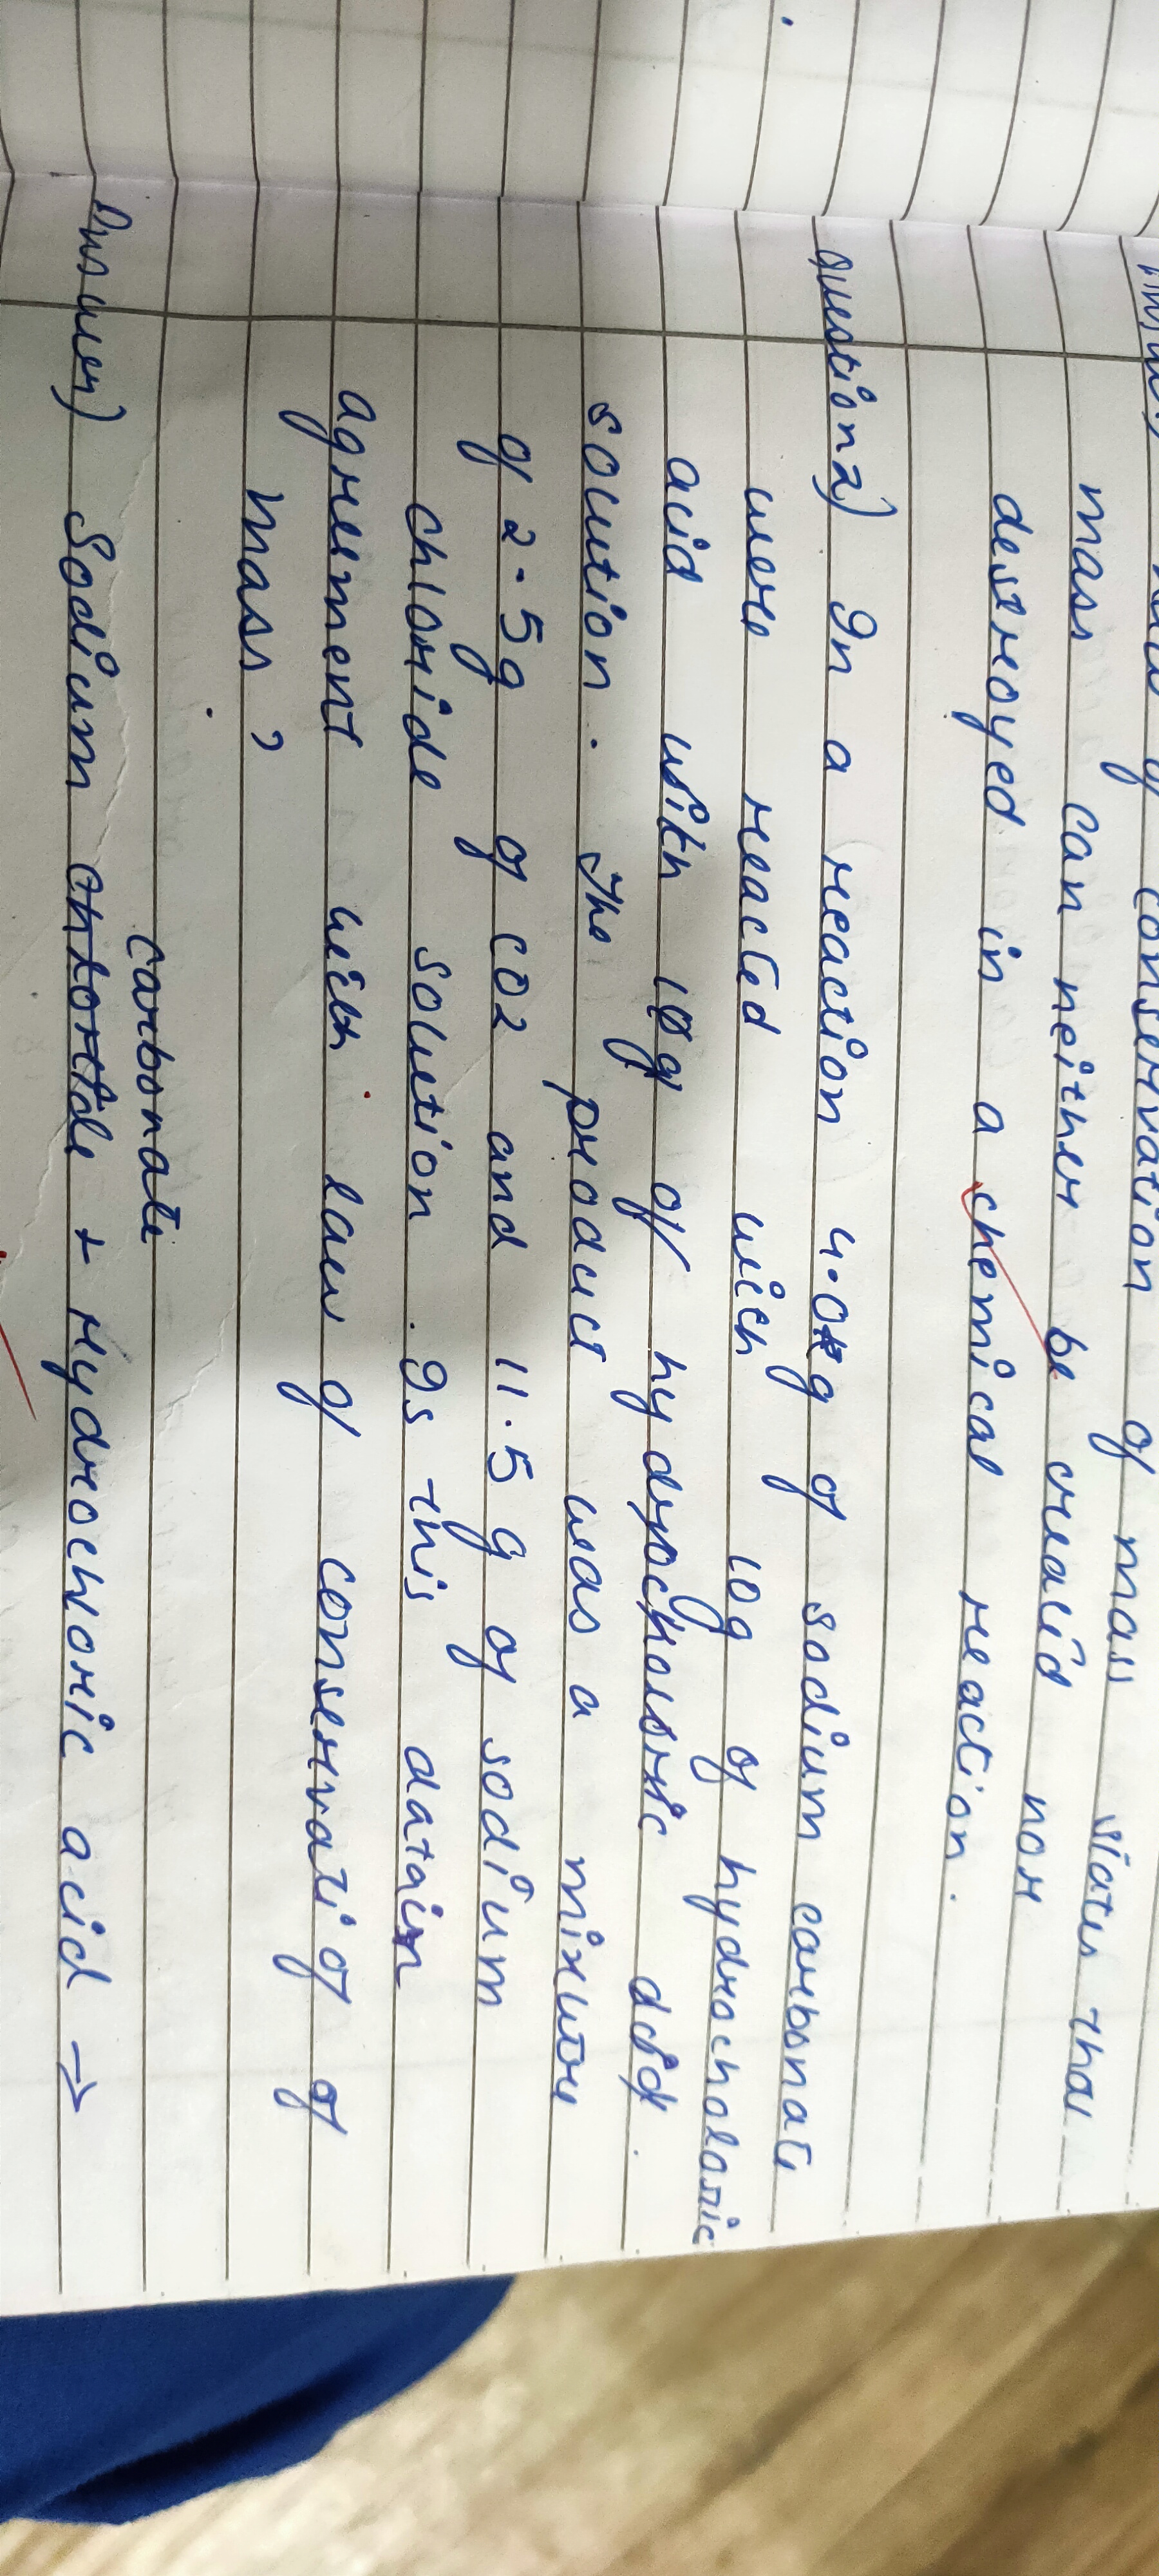 Law of conservation of mass states that
mass can neither be created nor
destroyed in a chemical reaction.
Question2) In a reaction 4.0g of sodium carbonate
were reacted with 10g of hydrocholoric
acid with 10g of hydrocholoric acid.
solution. The product was a mixture
of 2.5g of CO2 and 11.5 g of sodium
chloride solution. Is this data in
agrement with law of conservati of of
mass?
carbonate
Answer) Sodium + Hydrochloric acid →